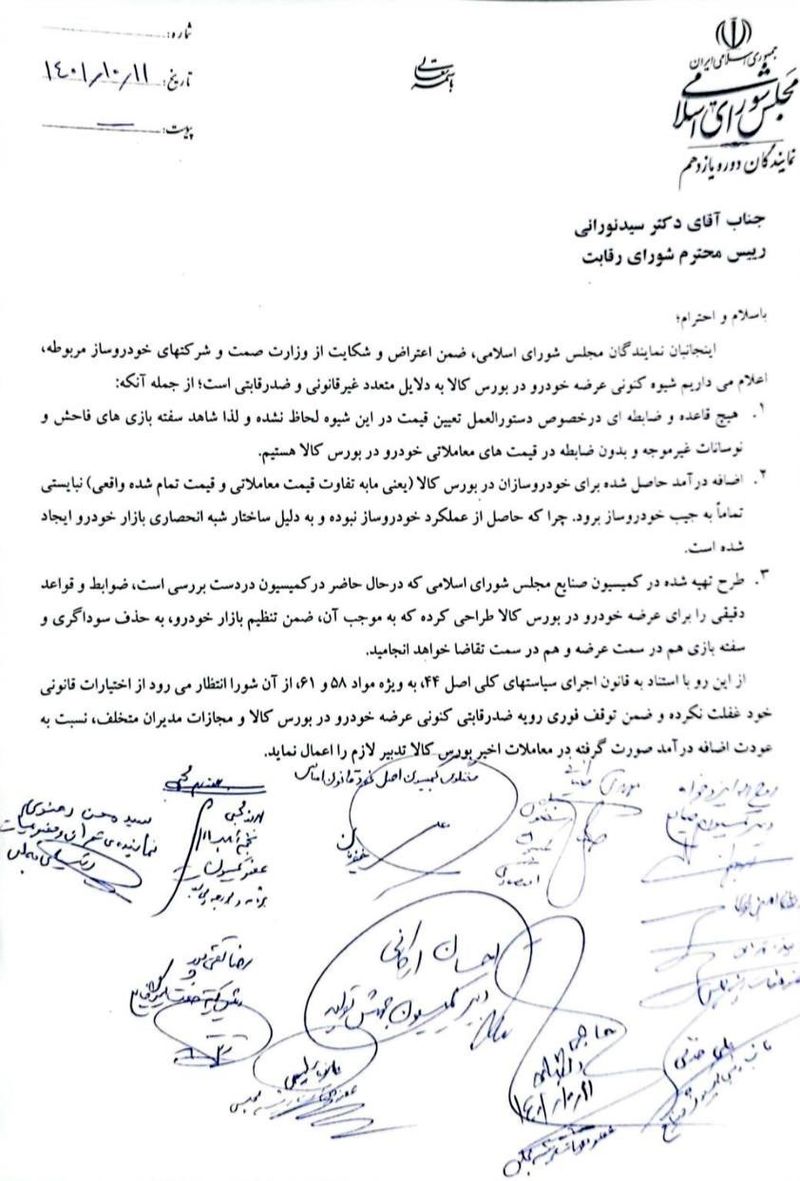 جمهوری اسلامی ایران
مجلس شورای اسلامی
نمایندگان دوره یازدهم
باسمه تعالی
شماره:
تاریخ: ۱۴۰۱/۱۰/۱۱
پیوست:
جناب آقای دکتر سیدنورانی
رییس محترم شورای رقابت
باسلام و احترام؛
اینجانبان نمایندگان مجلس شورای اسلامی، ضمن اعتراض و شکایت از وزارت صمت و شرکتهای خودروساز مربوطه،
اعلام می داریم شیوه کنونی عرضه خودرو در بورس کالا به دلایل متعدد غیرقانونی و ضدرقابتی است؛ از جمله آنکه:
۱. هیچ قاعده و ضابطه ای درخصوص دستورالعمل تعیین قیمت در این شیوه لحاظ نشده و لذا شاهد سفته بازی های فاحش و
نوسانات غیرموجه و بدون ضابطه در قیمت های معاملاتی خودرو در بورس کالا هستیم.
۲. اضافه درآمد حاصل شده برای خودروسازان در بورس کالا (یعنی مابه تفاوت قیمت معاملاتی و قیمت تمام شده واقعی) نبایستی
تماماً به جیب خودروساز برود. چرا که حاصل از عملکرد خودروساز نبوده و به دلیل ساختار شبه انحصاری بازار خودرو ایجاد
شده است.
۳. طرح تهیه شده در کمیسیون صنایع مجلس شورای اسلامی که درحال حاضر درکمیسیون دردست بررسی است، ضوابط و قواعد
دقیقی را برای عرضه خودرو در بورس کالا طراحی کرده که به موجب آن، ضمن تنظیم بازار خودرو، به حذف سوداگری و
سفته بازی هم در سمت عرضه و هم در سمت تقاضا خواهد انجامید.
از این رو با استناد به قانون اجرای سیاستهای کلی اصل ۴۴، به ویژه مواد ۵۸ و ۶۱، از آن شورا انتظار می رود از اختیارات قانونی
خود غفلت نکرده و ضمن توقف فوری رویه ضدرقابتی کنونی عرضه خودرو در بورس کالا و مجازات مدیران متخلف، نسبت به
عودت اضافه درآمد صورت گرفته در معاملات اخیر بورس کالا تدبیر لازم را اعمال نماید.
سخنگوی کمیسیون اصل نود قانون اساسی
روح اله ایزدخواه
سید محسن دهنوی
نماینده‌ی تهران
عضو کمیسیون
احسان ارکانی
دبیر کمیسیون جهش تولید
رضا تقی پور
حاجی دلیگانی
۱۴۰۱/۱۰/۱۱
علی جدی